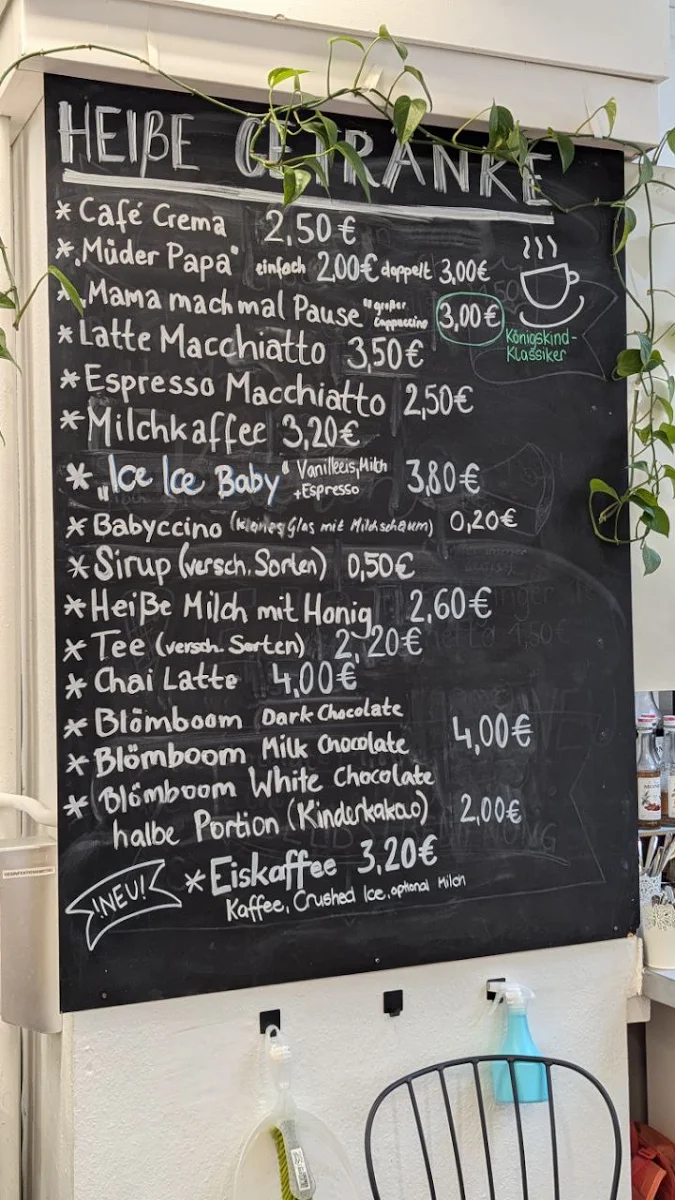 HEIßE GETRÄNKE
* Café Crema 2,50€
* „Müder Papa" einfach 2,00€ doppelt 3,00€
* „Mama mach mal Pause" großer Cappuccino 3,00€
Königskind-
Klassiker
* Latte Macchiatto 3,50€
* Espresso Macchiatto 2,50€
* Milchkaffee 3,20€
* „Ice Ice Baby" Vanilleeis, Milch
+Espresso 3,80€
* Babyccino (kleines Glas mit Milchschaum) 0,20€
* Sirup (versch. Sorten) 0,50€
* Heiße Milch mit Honig 2,60€
* Tee (versch. Sorten) 2,20€
* Chai Latte 4,00€
* Blömboom Dark Chocolate
* Blömboom Milk Chocolate 4,00€
* Blömboom White Chocolate
halbe Portion (Kinderkakao) 2,00€
!NEU! * Eiskaffee 3,20€
Kaffee, Crushed Ice, optional Milch